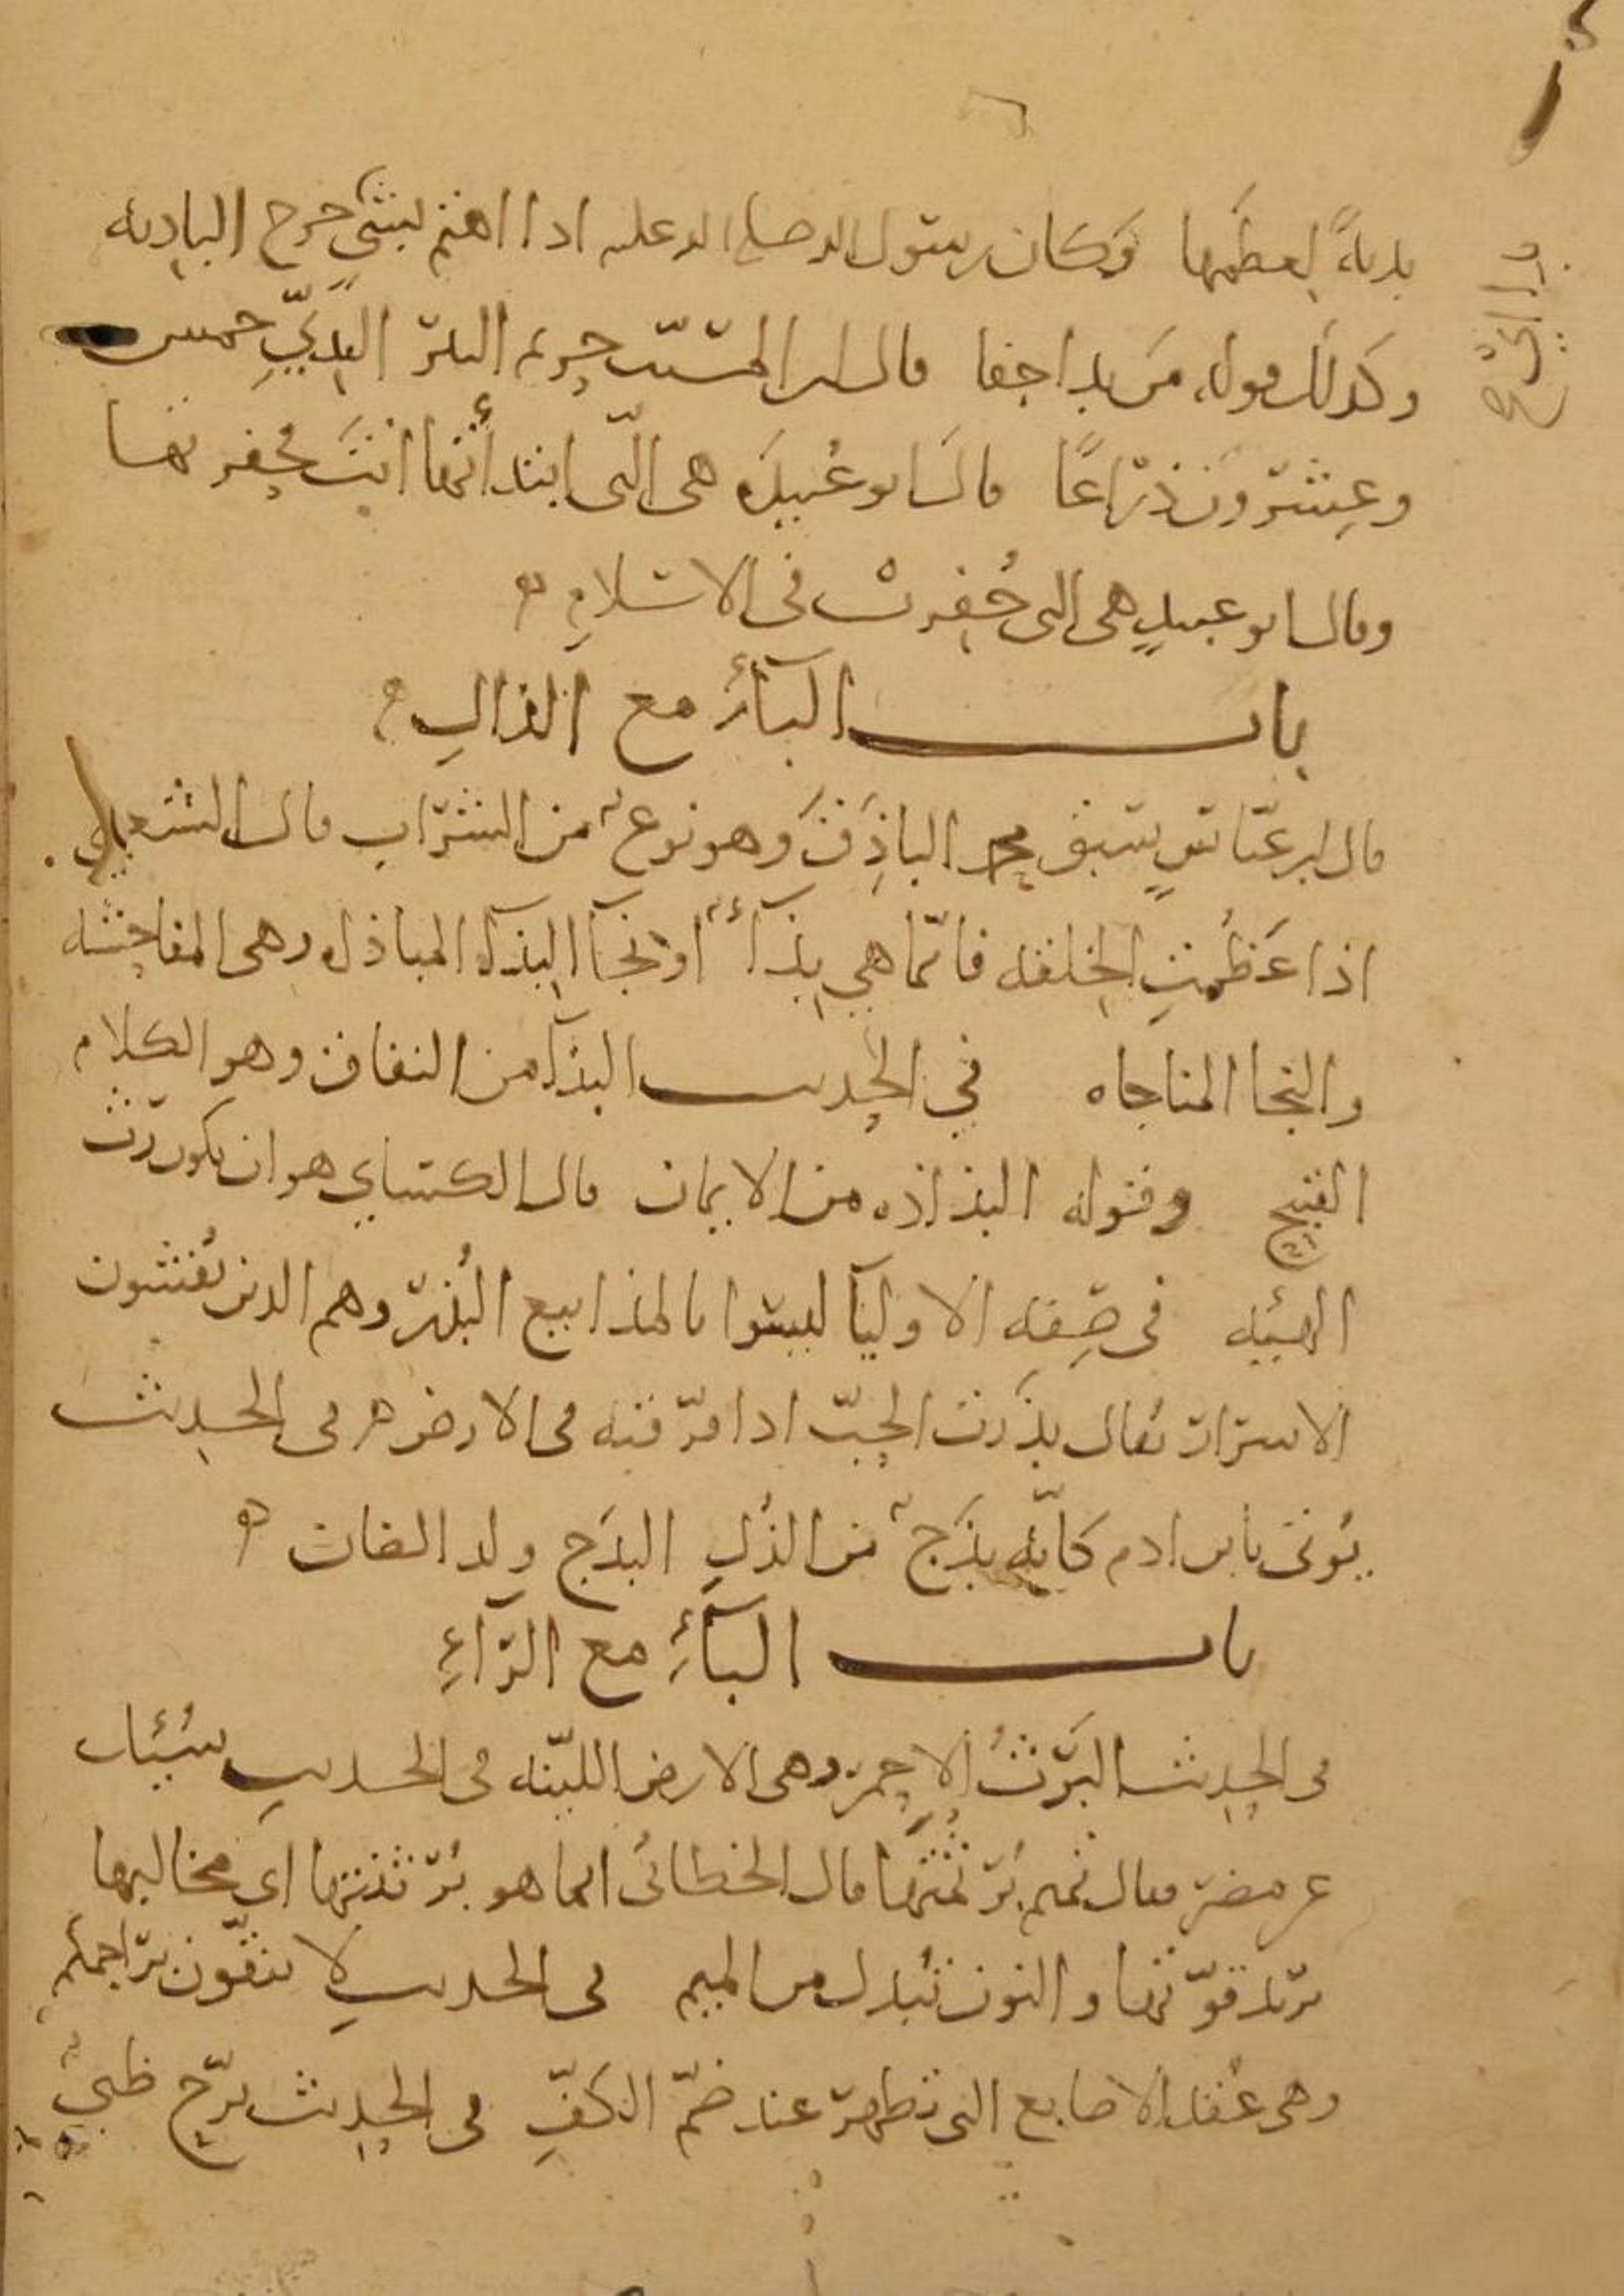 بدنةً لعظمها وكان رسول الله صلى الله عليه اذا اهتم بشيٍ خرج الى البادية
وكذلك قوله من بدا جفا قال ابن المسيّب حريم البئر البديّ خمس
وعشرون ذراعًا قال ابو عُبيدَه هي التي ابتدأتها انتَ فحفرتها
وقال ابو عبيدٍ هي التي حُفِرتْ في الاسلامِ
باب البآءِ مع الذالِ
قال ابن عبّاسٍ سبق محمد الباذِقَ وهو نوعٌ من الشراب قال الشعبي
اذا عَظُمتِ الخلقه فانّما هي بِذآءٌ او نجآ البِذآء المباذاه وهي المفاحشه
والنجا المناجاه في الحديث البذآ من النفاق وهو الكلام
القبيح وقوله البذاذه من الايمان قال الكسايي هو ان يكون رثّ
الهيئه في صِفه الاوليآ ليسوا بالمذاييع البُذُر وهم الذين يُفشون
الاسرار يقال بذرت الحبّ اذا فرّقته في الارض في الحديث
يُوتى بابن ادم كانّه بذَجٌ من الذُلِ البذَج ولد الضان
باب البآءِ مع الرّآءِ
في الحديث البَرْثُ الاحمر وهي الارض الليّنه في الحديثِ سُئل
عن مضر فقال تميم بُرثُمتُها قال الخطابي انما هو بُرثنتها اي مخاليبها
يريد قوّتها والنون تُبدل من الميم في الحديثِ لا ينقّون براجمهم
وهي عُقد الاصابع التي تظهر عند ضمّ الكفِّ في الحديث برّح ظبيٌ